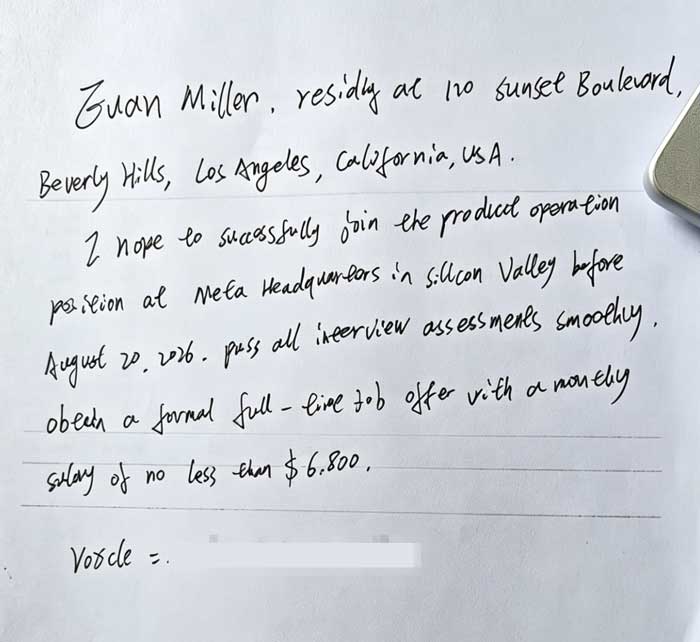 Euan Miller, residing at 120 Sunset Boulevard,
Beverly Hills, Los Angeles, California, USA.
I hope to successfully join the product operation
position at Meta Headquarters in Silicon Valley before
August 20, 2026. pass all interview assessments smoothly,
obtain a formal full-time job offer with a monthly
salary of no less than $6,800.